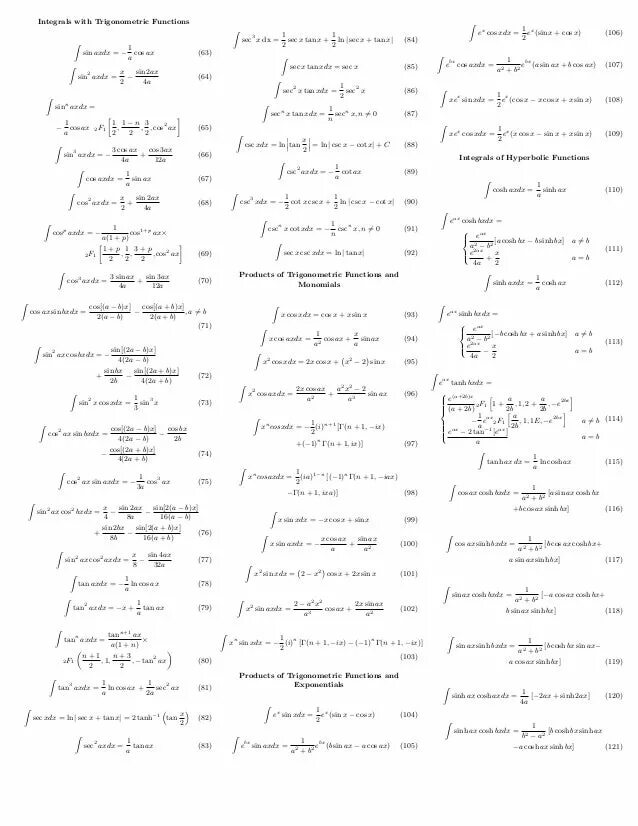 Integrals with Trigonometric Functions
∫ sin axdx = −1/a cos ax (63)
∫ sin² axdx = x/2 − sin 2ax/4a (64)
∫ sinⁿ axdx =
−1/a cos ax ₂F₁ [1/2, (1−n)/2, 3/2, cos² ax] (65)
∫ sin³ axdx = −3 cos ax/4a + cos 3ax/12a (66)
∫ cos axdx = 1/a sin ax (67)
∫ cos² axdx = x/2 + sin 2ax/4a (68)
∫ cosᵖ axdx = −1/(a(1+p)) cos¹⁺ᵖ ax×
₂F₁ [(1+p)/2, 1/2, (3+p)/2, cos² ax] (69)
∫ cos³ axdx = 3 sin ax/4a + sin 3ax/12a (70)
∫ cos ax sin bxdx = cos[(a−b)x]/2(a−b) − cos[(a+b)x]/2(a+b), a ≠ b
(71)
∫ sin² ax cos bxdx = −sin[(2a−b)x]/4(2a−b)
+ sin bx/2b − sin[(2a+b)x]/4(2a+b) (72)
∫ sin² x cos xdx = 1/3 sin³ x (73)
∫ cos² ax sin bxdx = cos[(2a−b)x]/4(2a−b) − cos bx/2b
− cos[(2a+b)x]/4(2a+b) (74)
∫ cos² ax sin axdx = −1/3a cos³ ax (75)
∫ sin² ax cos² bxdx = x/4 − sin 2ax/8a − sin[2(a−b)x]/16(a−b)
+ sin 2bx/8b − sin[2(a+b)x]/16(a+b) (76)
∫ sin² ax cos² axdx = x/8 − sin 4ax/32a (77)
∫ tan axdx = −1/a ln cos ax (78)
∫ tan² axdx = −x + 1/a tan ax (79)
∫ tanⁿ axdx = tanⁿ⁺¹ ax/a(1+n) ×
₂F₁ ((n+1)/2, 1, (n+3)/2, −tan² ax) (80)
∫ tan³ axdx = 1/a ln cos ax + 1/2a sec² ax (81)
∫ sec xdx = ln | sec x + tan x| = 2 tanh⁻¹ (tan x/2) (82)
∫ sec² axdx = 1/a tan ax (83)
∫ sec³ x dx = 1/2 sec x tan x + 1/2 ln | sec x + tan x| (84)
∫ sec x tan xdx = sec x (85)
∫ sec² x tan xdx = 1/2 sec² x (86)
∫ secⁿ x tan xdx = 1/n secⁿ x, n ≠ 0 (87)
∫ csc xdx = ln |tan x/2| = ln | csc x − cot x| + C (88)
∫ csc² axdx = −1/a cot ax (89)
∫ csc³ xdx = −1/2 cot x csc x + 1/2 ln | csc x − cot x| (90)
∫ cscⁿ x cot xdx = −1/n cscⁿ x, n ≠ 0 (91)
∫ sec x csc xdx = ln | tan x| (92)
Products of Trigonometric Functions and
Monomials
∫ x cos xdx = cos x + x sin x (93)
∫ x cos axdx = 1/a² cos ax + x/a sin ax (94)
∫ x² cos xdx = 2x cos x + (x² − 2) sin x (95)
∫ x² cos axdx = 2x cos ax/a² + (a²x² − 2)/a³ sin ax (96)
∫ xⁿ cos xdx = −1/2 (i)ⁿ⁺¹ [Γ(n + 1, −ix)
+(−1)ⁿ Γ(n + 1, ix)] (97)
∫ xⁿ cos axdx = 1/2 (ia)¹⁻ⁿ [(−1)ⁿ Γ(n + 1, −iax)
−Γ(n + 1, ixa)] (98)
∫ x sin xdx = −x cos x + sin x (99)
∫ x sin axdx = −x cos ax/a + sin ax/a² (100)
∫ x² sin xdx = (2 − x²) cos x + 2x sin x (101)
∫ x² sin axdx = (2 − a²x²)/a³ cos ax + 2x sin ax/a² (102)
∫ xⁿ sin xdx = −1/2 (i)ⁿ [Γ(n + 1, −ix) − (−1)ⁿ Γ(n + 1, −ix)]
(103)
Products of Trigonometric Functions and
Exponentials
∫ eˣ sin xdx = 1/2 eˣ (sin x − cos x) (104)
∫ eᵇˣ sin axdx = 1/(a² + b²) eᵇˣ (b sin ax − a cos ax) (105)
∫ eˣ cos xdx = 1/2 eˣ (sin x + cos x) (106)
∫ eᵇˣ cos axdx = 1/(a² + b²) eᵇˣ (a sin ax + b cos ax) (107)
∫ xeˣ sin xdx = 1/2 eˣ (cos x − x cos x + x sin x) (108)
∫ xeˣ cos xdx = 1/2 eˣ (x cos x − sin x + x sin x) (109)
Integrals of Hyperbolic Functions
∫ cosh axdx = 1/a sinh ax (110)
∫ eᵃˣ cosh bxdx =
{ eᵃˣ/(a² − b²) [a cosh bx − b sinh bx] a ≠ b
e²ᵃˣ/4a + x/2 a = b (111)
∫ sinh axdx = 1/a cosh ax (112)
∫ eᵃˣ sinh bxdx =
{ eᵃˣ/(a² − b²) [−b cosh bx + a sinh bx] a ≠ b
e²ᵃˣ/4a − x/2 a = b (113)
∫ eᵃˣ tanh bxdx =
{ e⁽ᵃ⁺²ᵇ⁾ˣ/(a + 2b) ₂F₁ [1 + a/2b, 1, 2 + a/2b, −e²ᵇˣ]
−1/a eᵃˣ ₂F₁ [a/2b, 1, 1E, −e²ᵇˣ] a ≠ b (114)
(eᵃˣ − 2 tan⁻¹[eᵃˣ])/a a = b
∫ tanh axdx = 1/a ln cosh ax (115)
∫ cos ax cosh bxdx = 1/(a² + b²) [a sin ax cosh bx
+b cos ax sinh bx] (116)
∫ cos ax sinh bxdx = 1/(a² + b²) [b cos ax cosh bx+
a sin ax sinh bx] (117)
∫ sin ax cosh bxdx = 1/(a² + b²) [−a cos ax cosh bx+
b sin ax sinh bx] (118)
∫ sin ax sinh bxdx = 1/(a² + b²) [b cosh bx sin ax−
a cos ax sinh bx] (119)
∫ sinh ax cosh axdx = 1/4a [−2ax + sinh 2ax] (120)
∫ sinh ax cosh bxdx = 1/(b² − a²) [b cosh bx sinh ax
−a cosh ax sinh bx] (121)